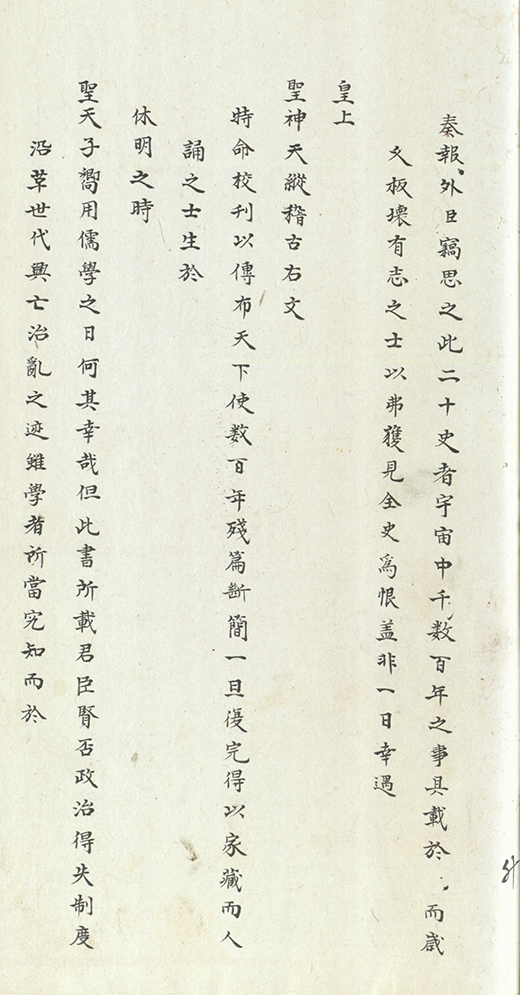 秦報外臣竊思之此二十史者宇宙中千數百年之事具載於而歲
久板壞有志之士以弗獲見全史為恨盖非一日幸遇
皇上
聖神天縱稽古右文
特命校刊以傳布天下使数百年殘篇断簡一旦復完得以家藏而人
誦之士生於
休明之時
聖天子嚮用儒學之日何其幸哉但此書所載君臣賢否政治得失制度
沿革世代興亡治亂之迹雖學者所當究知而於